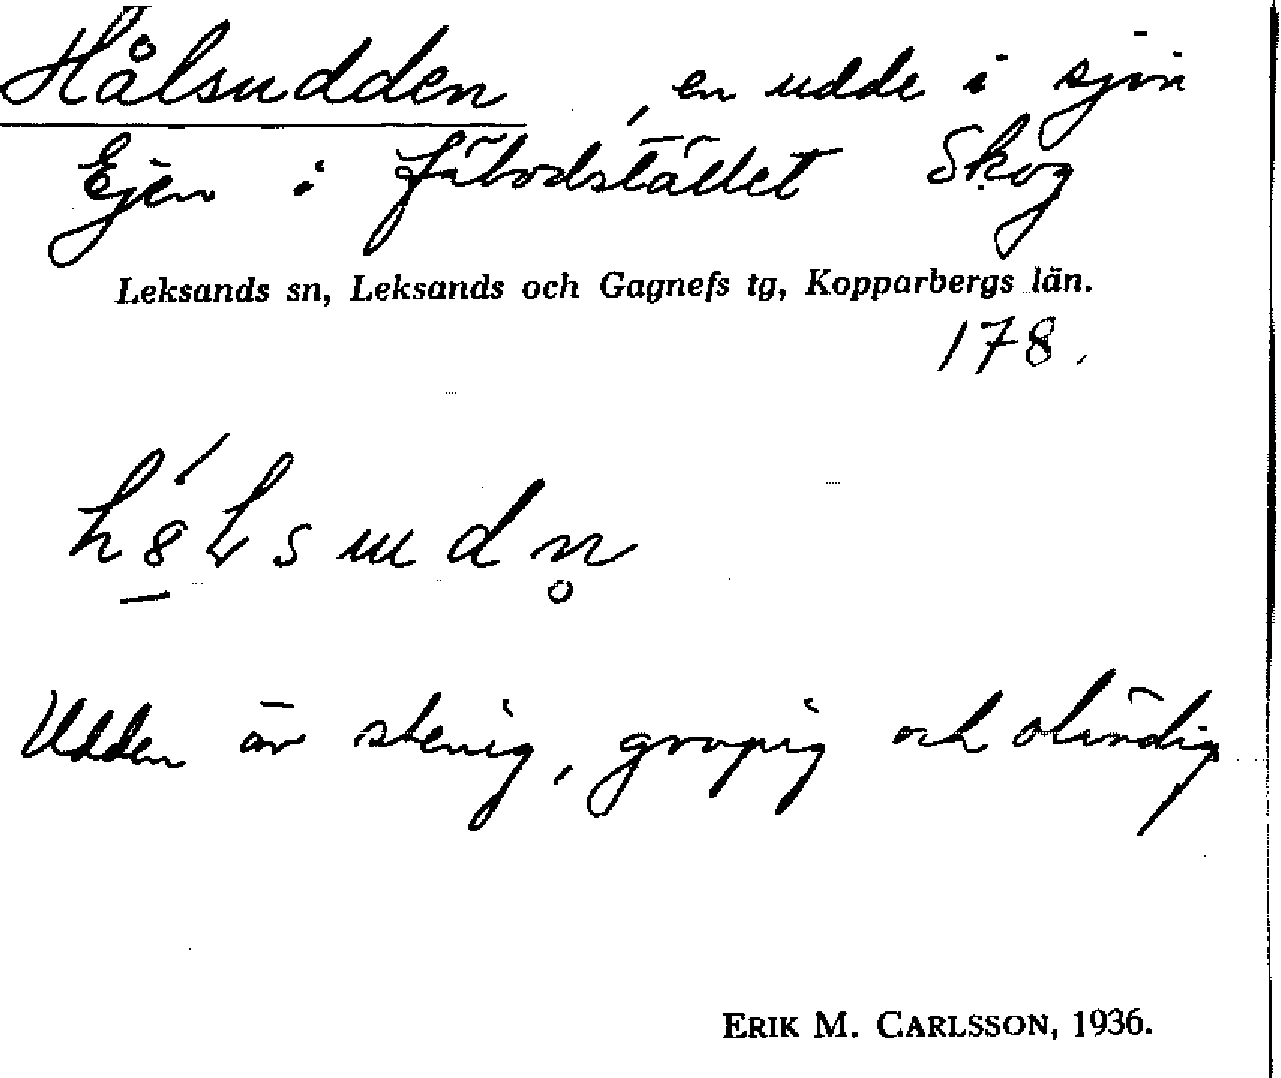 Hålsudden, en udde i sjön
Ejen i fäbodstället Skog
Leksands sn, Leksands och Gagnefs tg, Kopparbergs län.
178.
Udden är stenig, gropig och oländig
ERIK M. CARLSSON, 1936.